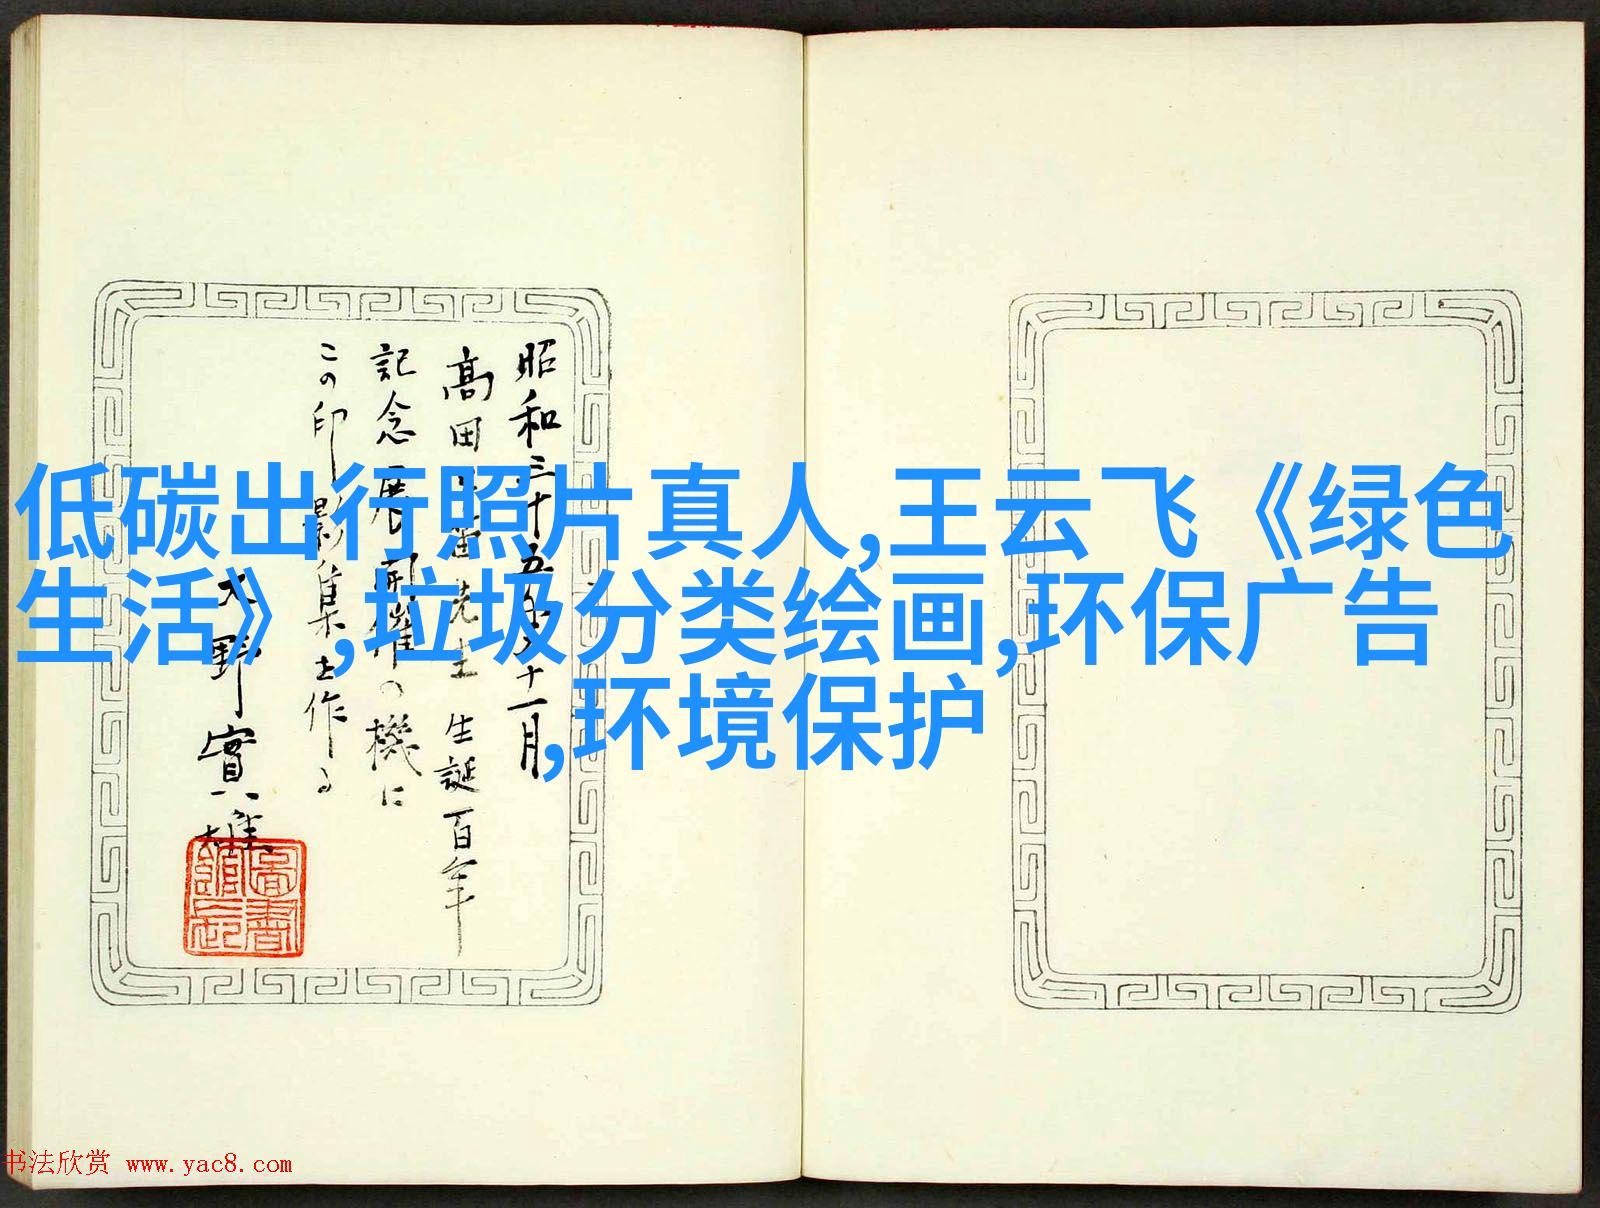 低碳出行照片真人,王云飞《绿色
生活》,垃圾分类绘画,环保广告
,环境保护
昭和三十五年十一月
高田 先生 生誕百年
記念展開催の機に
この印影集を作る
大野實雄
圖書
館長
书法欣赏 www.yac8.com